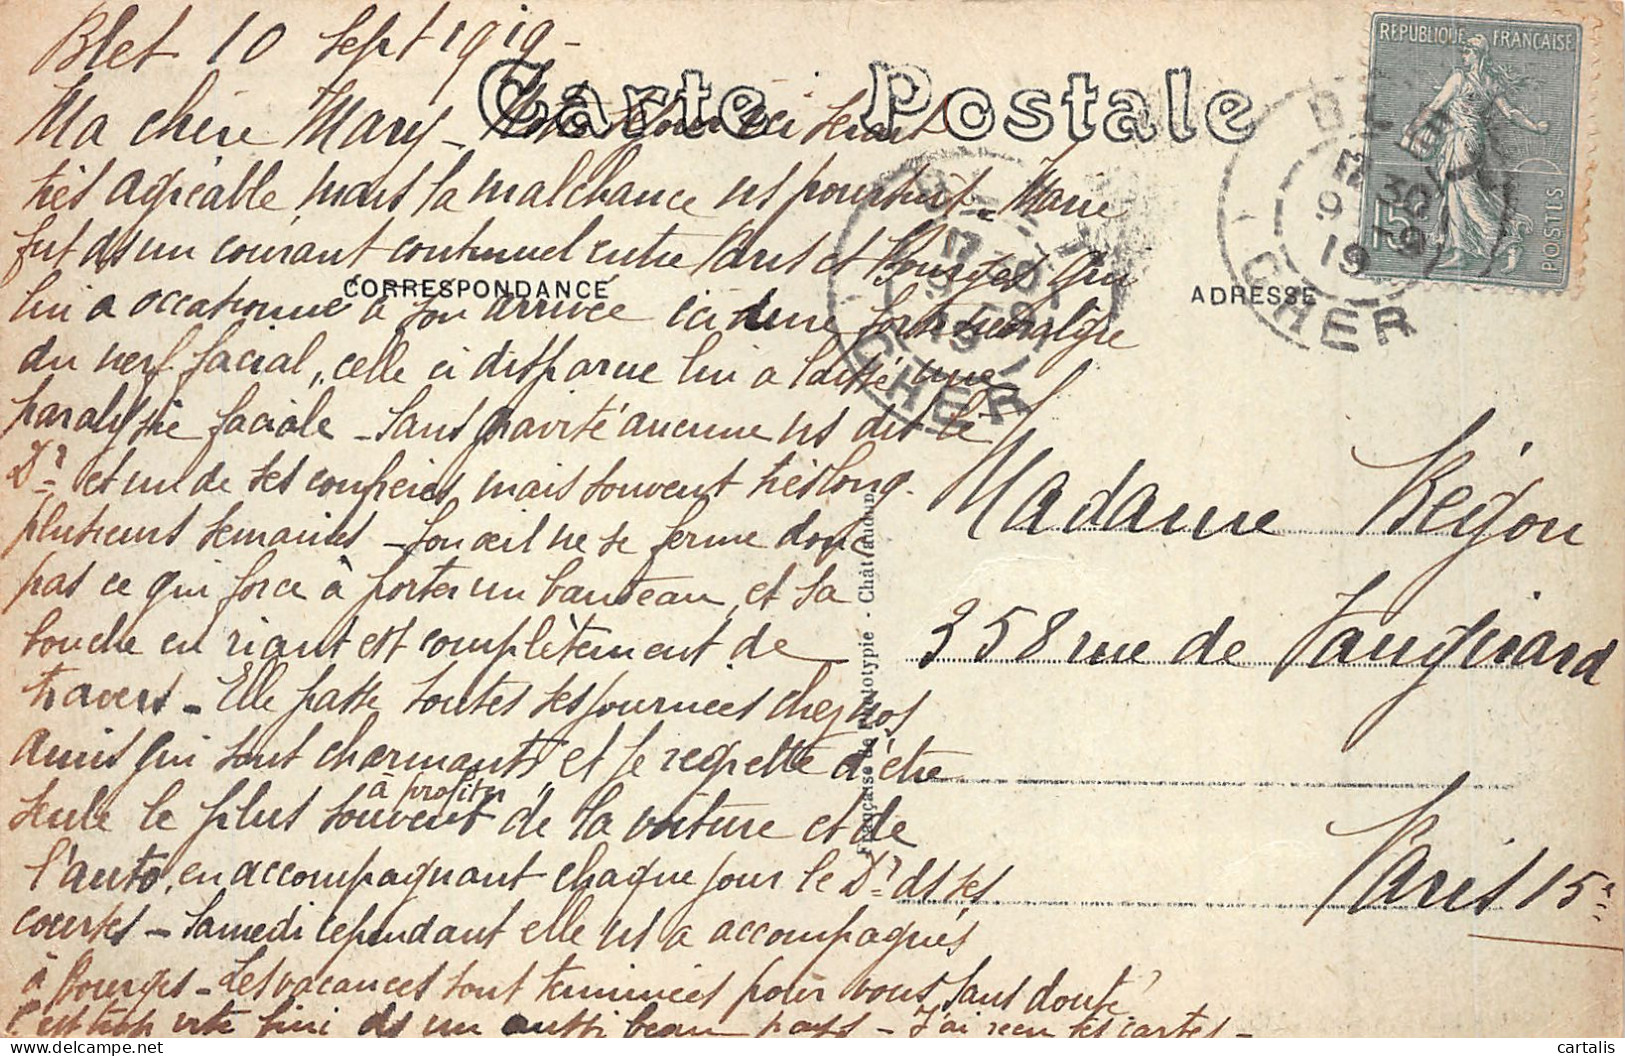 Blet 10 Sept 1919 -
Carte Postale
Ma chère Mary - Notre séjour ici serait
très agréable, mais la malchance ns poursuit - Marie
fut ds un courant continuel entre Paris et Bourges qui
CORRESPONDANCE
lui a occasionné à son arrivée ici d'une forte névralgie
du nerf facial, celle ci disparue lui a laissé une
paralysie faciale - sans gravité aucune ns dit le
Dr et un de ses confrères, mais souvent très long.
plusieurs semaines - son œil ne se ferme donc
pas ce qui force à porter un bandeau, et sa
bouche en riant est complètement de
travers - Elle passe toutes ses journées chez nos
amis qui sont charmants, et je regrette d'être
seule le plus souvent à profiter de la voiture et de
l'auto, en accompagnant chaque jour le Dr ds ses
courses - Samedi cependant elle ns a accompagnés
à Bourges - Les vacances sont terminées pour vous sans doute
c'est trop vite fini ds un aussi beau pays - J'ai reçu tes cartes -
REPUBLIQUE FRANÇAISE
15c
POSTES
BLET
CHER
BLET
CHER
ADRESSE
Madame Régon
358 rue de Vaugirard
Paris 15e
Française de Phototypie - Châteaudun
delcampe.net
cartalis